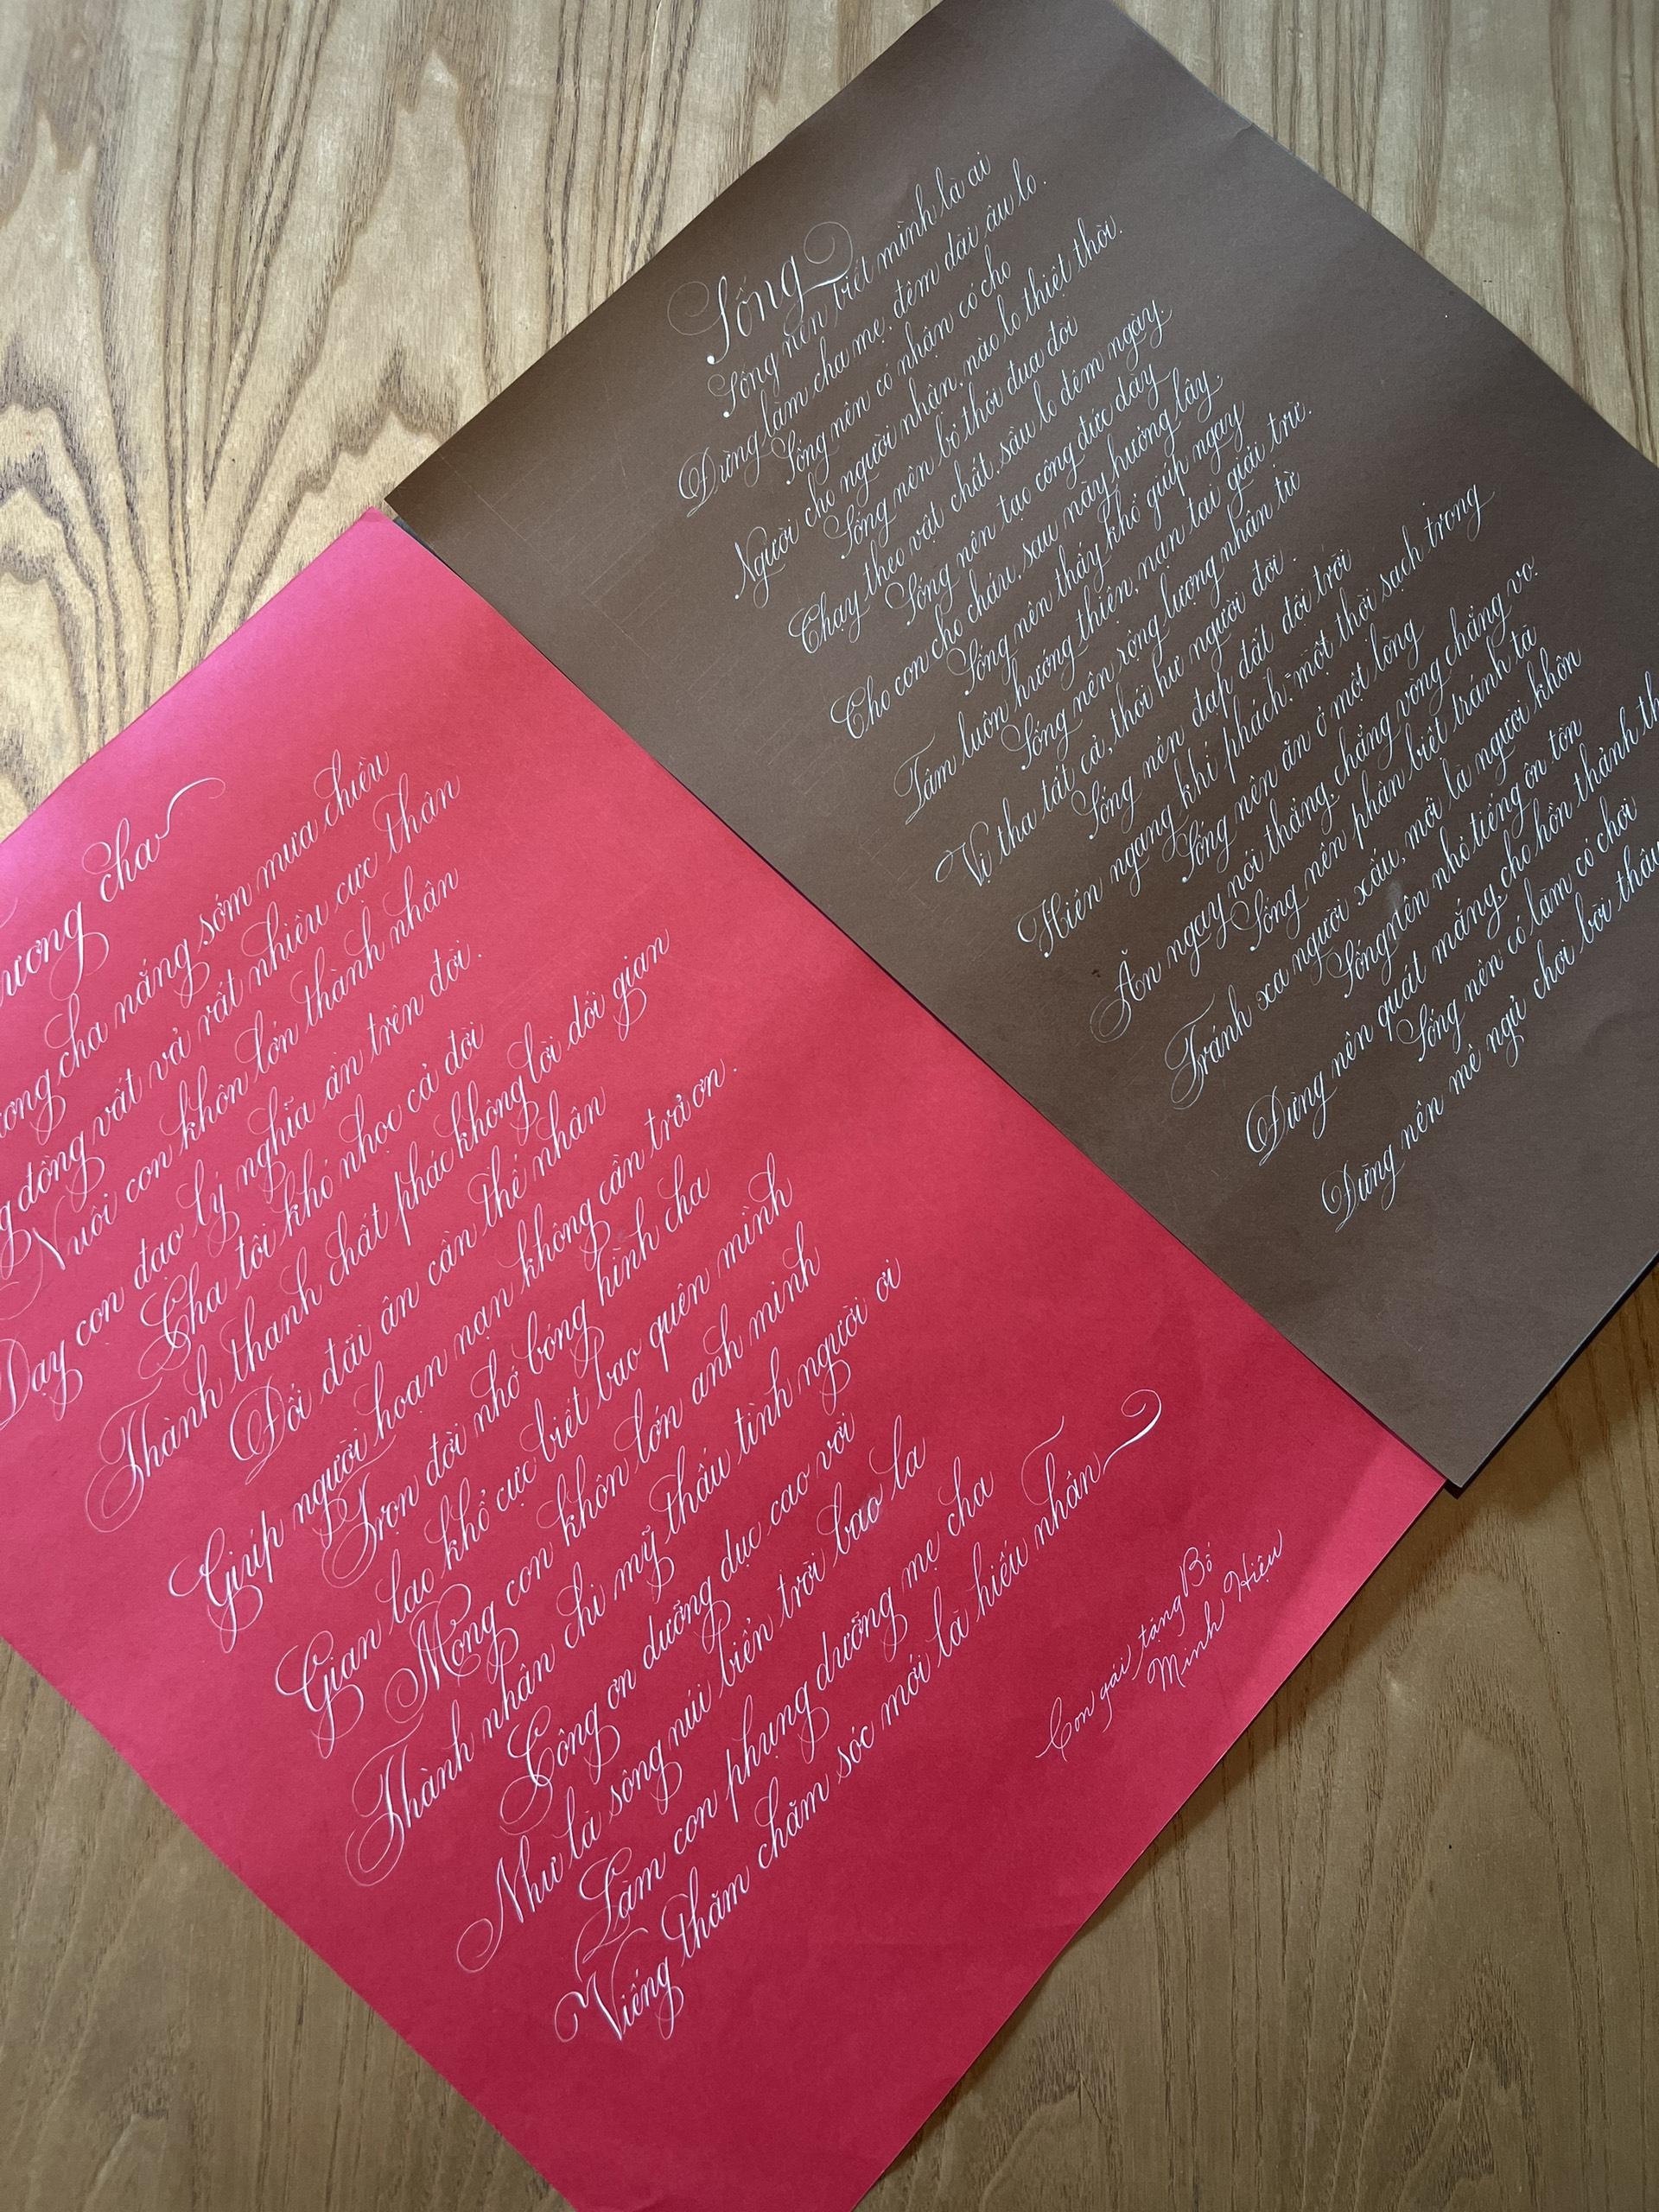 Sống
Sống nên biết mình là ai
Đừng làm cha mẹ, đêm dài âu lo.
Sống nên có nhận có cho
Người cho người nhận, nào lo thiệt thòi.
Sống nên bỏ thói đua đòi
Chạy theo vật chất, sầu lo đêm ngày.
Sống nên tạo công đức dày
Cho con cho cháu, sau này hưởng lây.
Sống nên thấy khó giúp ngay
Tâm luôn hướng thiện, nạn tai giải trừ.
Sống nên rộng lượng nhân từ
Vị tha tất cả, thói hư người đời.
Sống nên đạp đất đội trời
Hiên ngang khí phách, một thời sạch trong
Sống nên ăn ở một lòng
Ăn ngay nói thẳng, chẳng vòng chẳng vo.
Sống nên phân biệt tránh tà
Tránh xa người xấu, mới là người khôn
Sống nên nhỏ tiếng ôn tồn
Đừng nên quát mắng, cho hồn thảnh
Sống nên có làm có chơi
Đừng nên mê ngủ chơi bời
cha
cha nắng sớm mưa chiều
đồng vất vả rất nhiều cực thân
Nuôi con khôn lớn thành nhân
Dạy con đạo lý nghĩa ân trên đời.
Cha tôi khó nhọc cả đời
Thành thanh chất phác không lời dối gian
Đối đãi ân cần thế nhân
Giúp người hoạn nạn không cần trả ơn.
Trọn đời nhớ bóng hình cha
Gian lao khổ cực biết bao quên mình
Mong con khôn lớn anh minh
Thành nhân chi mỹ thấu tình người ơi
Công ơn dưỡng dục cao vời
Như là sông núi biển trời bao la
Làm con phụng dưỡng mẹ cha
Viếng thăm chăm sóc mới là hiếu nhân
Con gái tặng Bố
Minh Hiệu